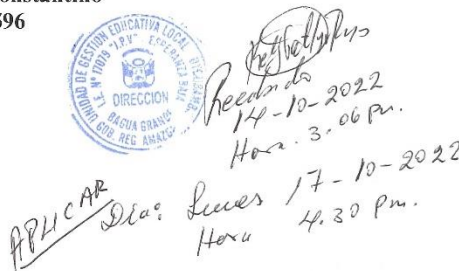 onstantino
596
UNIDAD DE GESTION EDUCATIVA LOCAL UTCUBAMBA
I.E. Nº 17079 "I.P.V" ESPERANZA BAJA
DIRECCION
BAGUA GRANDE
GOB. REG. AMAZONAS
Recibido
14-10-2022
Hora. 3.06 pm.
APLICAR
Dia: Lunes 17-10-2022
Hora 4.30 pm.